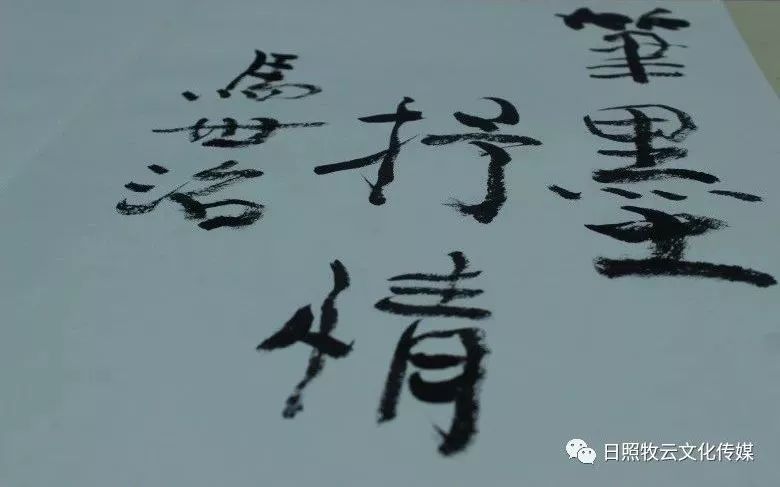 筆墨
抒情
日照牧云文化传媒